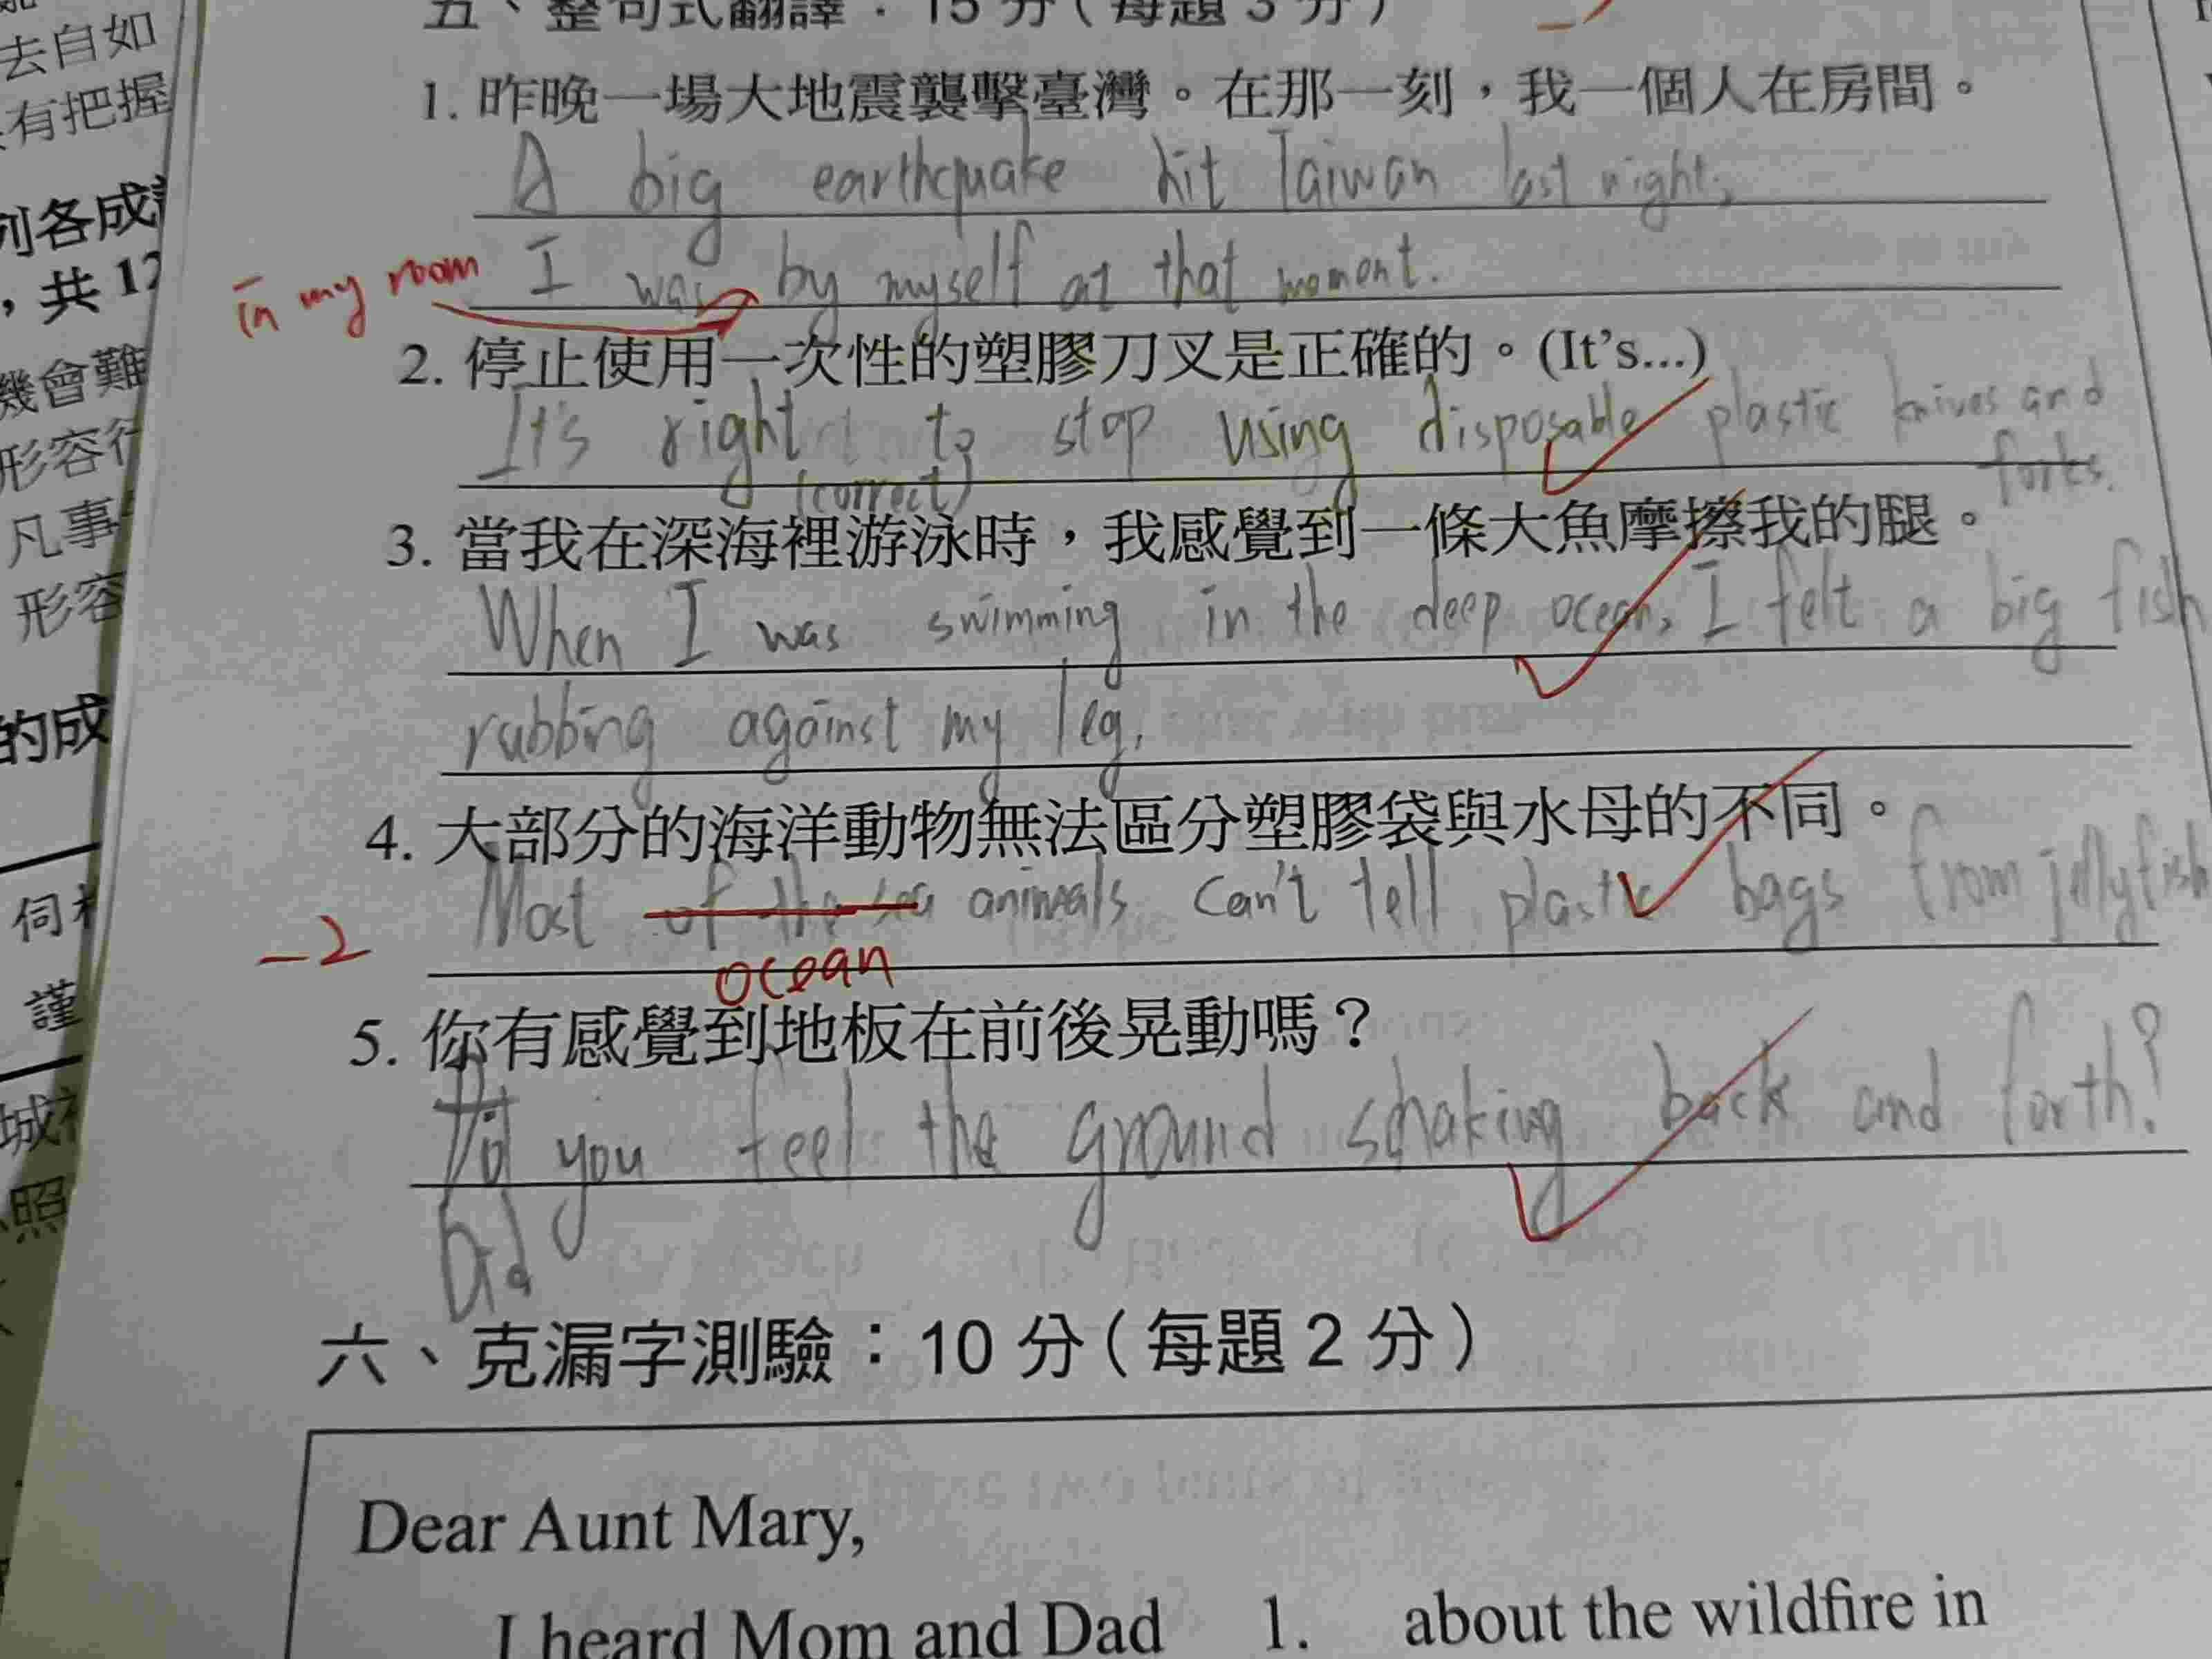 去自如
有把握
列各成
，共 12
機會難
形容
凡事
形容
的成
伺
謹
城
照
五、整句式翻譯：15 分（每題 3 分）
1. 昨晚一場大地震襲擊臺灣。在那一刻，我一個人在房間。
A big earthquake hit Taiwan last night,
in my room
I was by myself at that moment.
2. 停止使用一次性的塑膠刀叉是正確的。(It's...)
It's right to stop using disposable plastic knives and
forks.
(correct)
3. 當我在深海裡游泳時，我感覺到一條大魚摩擦我的腿。
When I was swimming in the deep ocean, I felt a big fish
rubbing against my leg.
4. 大部分的海洋動物無法區分塑膠袋與水母的不同。
Most of the sea animals can't tell plastic bags from jellyfish
-2
ocean
5. 你有感覺到地板在前後晃動嗎？
Did you feel the ground shaking back and forth?
Did
六、克漏字測驗：10 分（每題 2 分）
Dear Aunt Mary,
I heard Mom and Dad 1. about the wildfire in